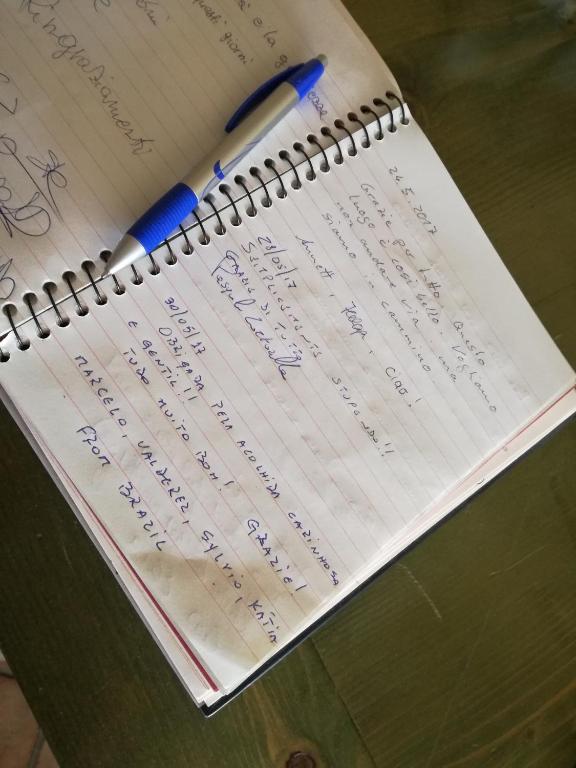 è la g
questi giorni
Ringraziamento
24.5.2017
Grazie per tto questo
luogo è così bello. Vogliamo
non andare via. ma
siamo in cammino
Annett, Ciao!
28/05/17
SEMPLICEMENTE STUPENDO!!
GRAZIE DI TUTTO
30/05/17
OBRIGADA PELA ACOLHIDA CARINHOSA
E GENTIL!!
TUDO MUITO BOM! GRAZIE!
MARCELO, VALDEREZ, SYLVIO, KÁTIA
FROM BRAZIL